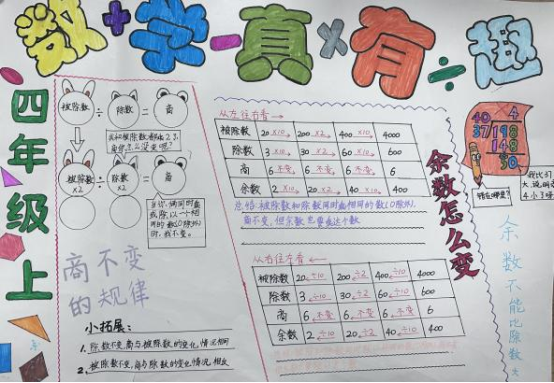 数+学-真×有÷趣
四年级上
被除数 ÷ 除数 = 商
被除数×2 ÷ 除数×2 = 商
商不变的规律
小拓展：
1、除数不变,商与被除数的变化情况相同
2、被除数不变,商与除数的变化情况相反
从左往右看→
被除数 20 ×10 200 ×2 400 ×10 4000
除数 3 ×10 30 ×2 60 ×10 600
商 6 不变 6 不变 6 不变 6
余数 2 ×10 20 ×2 40 ×10 400
总结:被除数和除数同时乘相同的数(0除外)
商不变,但余数也要乘这个数
从右往左看←
被除数 20 ÷10 200 ÷2 400 ÷10 4000
除数 3 ÷10 30 ÷2 60 ÷10 600
商 6 不变 6 不变 6 不变 6
余数 2 ÷10 20 ÷2 40 ÷10 400
余数怎么变
40 4
37 198
148
50
错在哪里?
余数不能比除数大